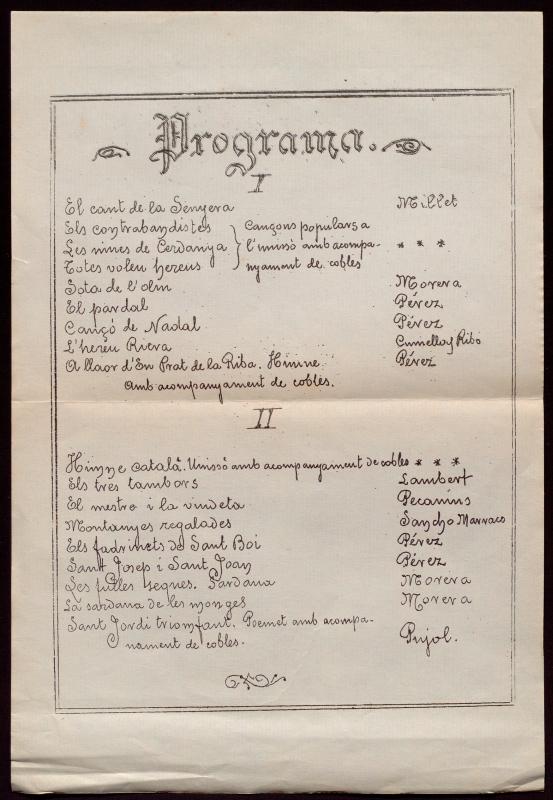 Programa.
I
El cant de la Senyera Millet
Els contrabandistes Cançons populars a
Les nines de Cerdanya l'unissò amb acompa- * * *
Totes voleu hereus nyament de cobles
Sota de l'olm Morera
El pardal Pérez
Cançó de Nadal Pérez
L'hereu Riera Cumellas Ribó
A llaor d'En Prat de la Riba. Himne Pérez
Amb acompanyament de cobles.
II
Himne català. Unissò amb acompanyament de cobles * * *
Els tres tambors Lambert
El mestre i la vindeta Pecanins
Montanyes regalades Sancho Marraco
Els fadrinets de Sant Boi Pérez
Sant Josep i Sant Joan Pérez
Les fulles seques. Sardana Morera
La sardana de les monges Morera
Sant Jordi triomfant. Poemet amb acompa-
nament de cobles. Pujol.